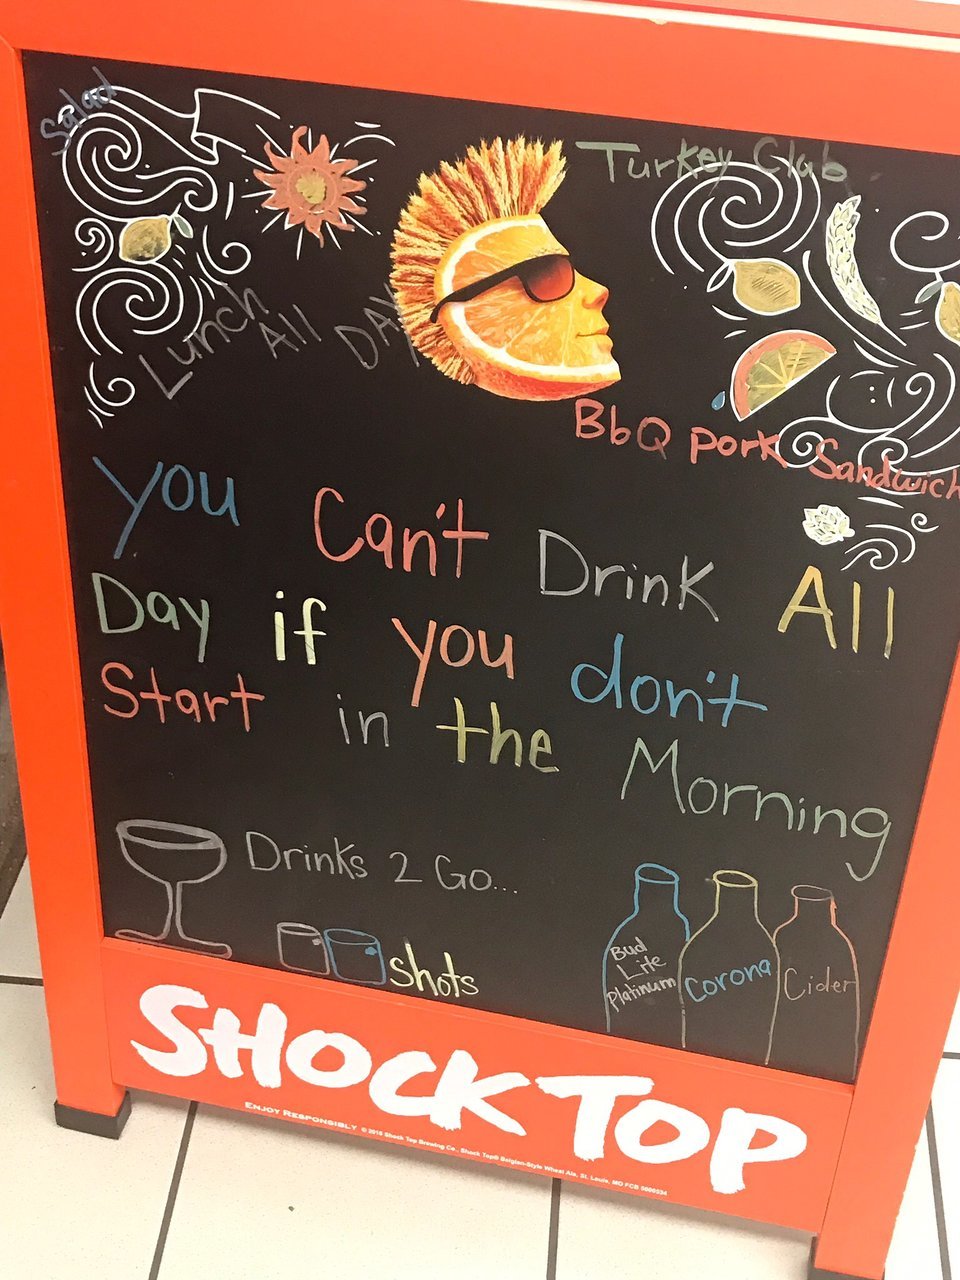 Salad
Turkey Club
Lunch All DAY
BbQ pork Sandwich
you Can't Drink All
Day if you don't
Start in the Morning
Drinks 2 Go...
shots
Bud
Lite
Platinum
Corona
Cider
SHOCK TOP
ENJOY RESPONSIBLY © 2015 Shock Top Brewing Co., Shock Top® Belgian-Style Wheat Ale, St. Louis, MO